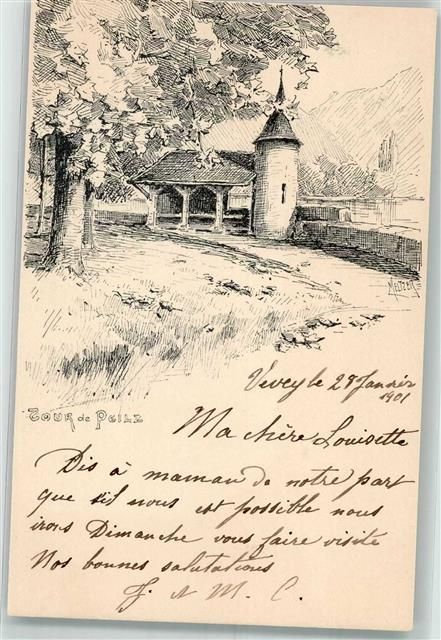 MELTZER
Vevey le 28 Janvier
1901
TOUR de PEILZ
Ma chère Louisette
Dis à maman de notre part
que s'il nous est possible nous
irons Dimanche vous faire visite
Nos bonnes salutations
J. & M. C.